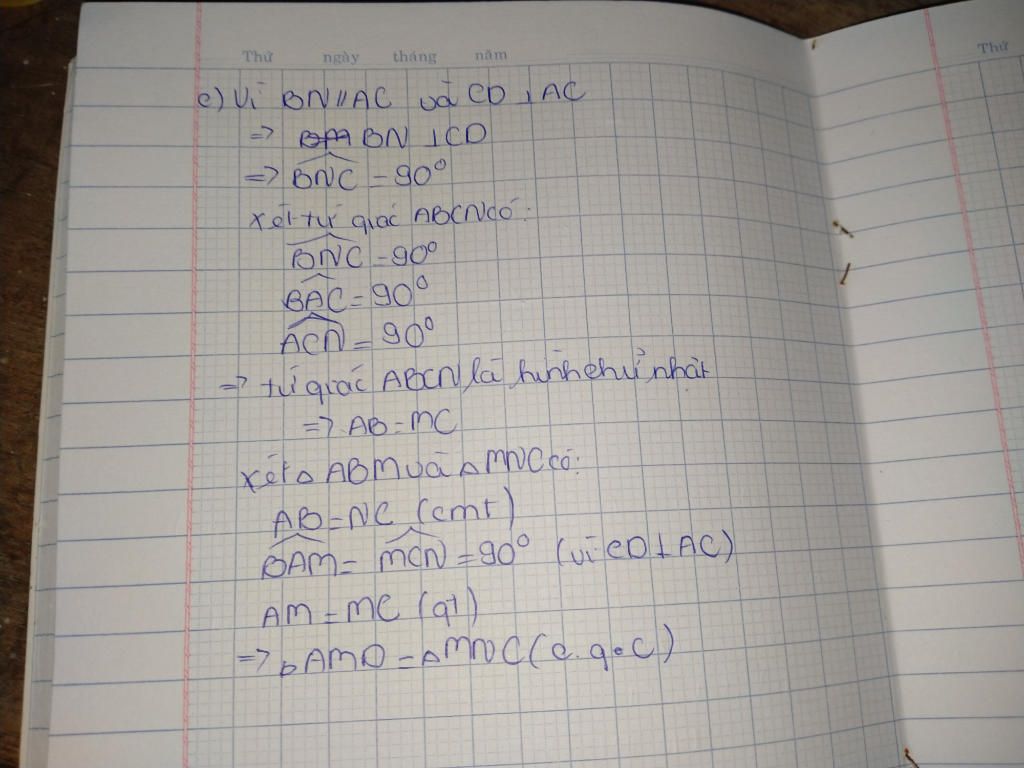 Thứ ngày tháng năm
Thứ
c) Vì BN // AC và CD ⊥ AC
=> BN ⊥ CD
=> BNC = 90°
xét tứ giác ABCN có:
BNC = 90°
BAC = 90°
ACN = 90°
=> tứ giác ABCN là hình chữ nhật
=> AB = MC
xét △ ABM và △ MNC có:
AB = NC (cmt)
BAM = MCN = 90° (vì CD ⊥ AC)
AM = MC (gt)
=> △ AMD = △ MNC (c.g.c)